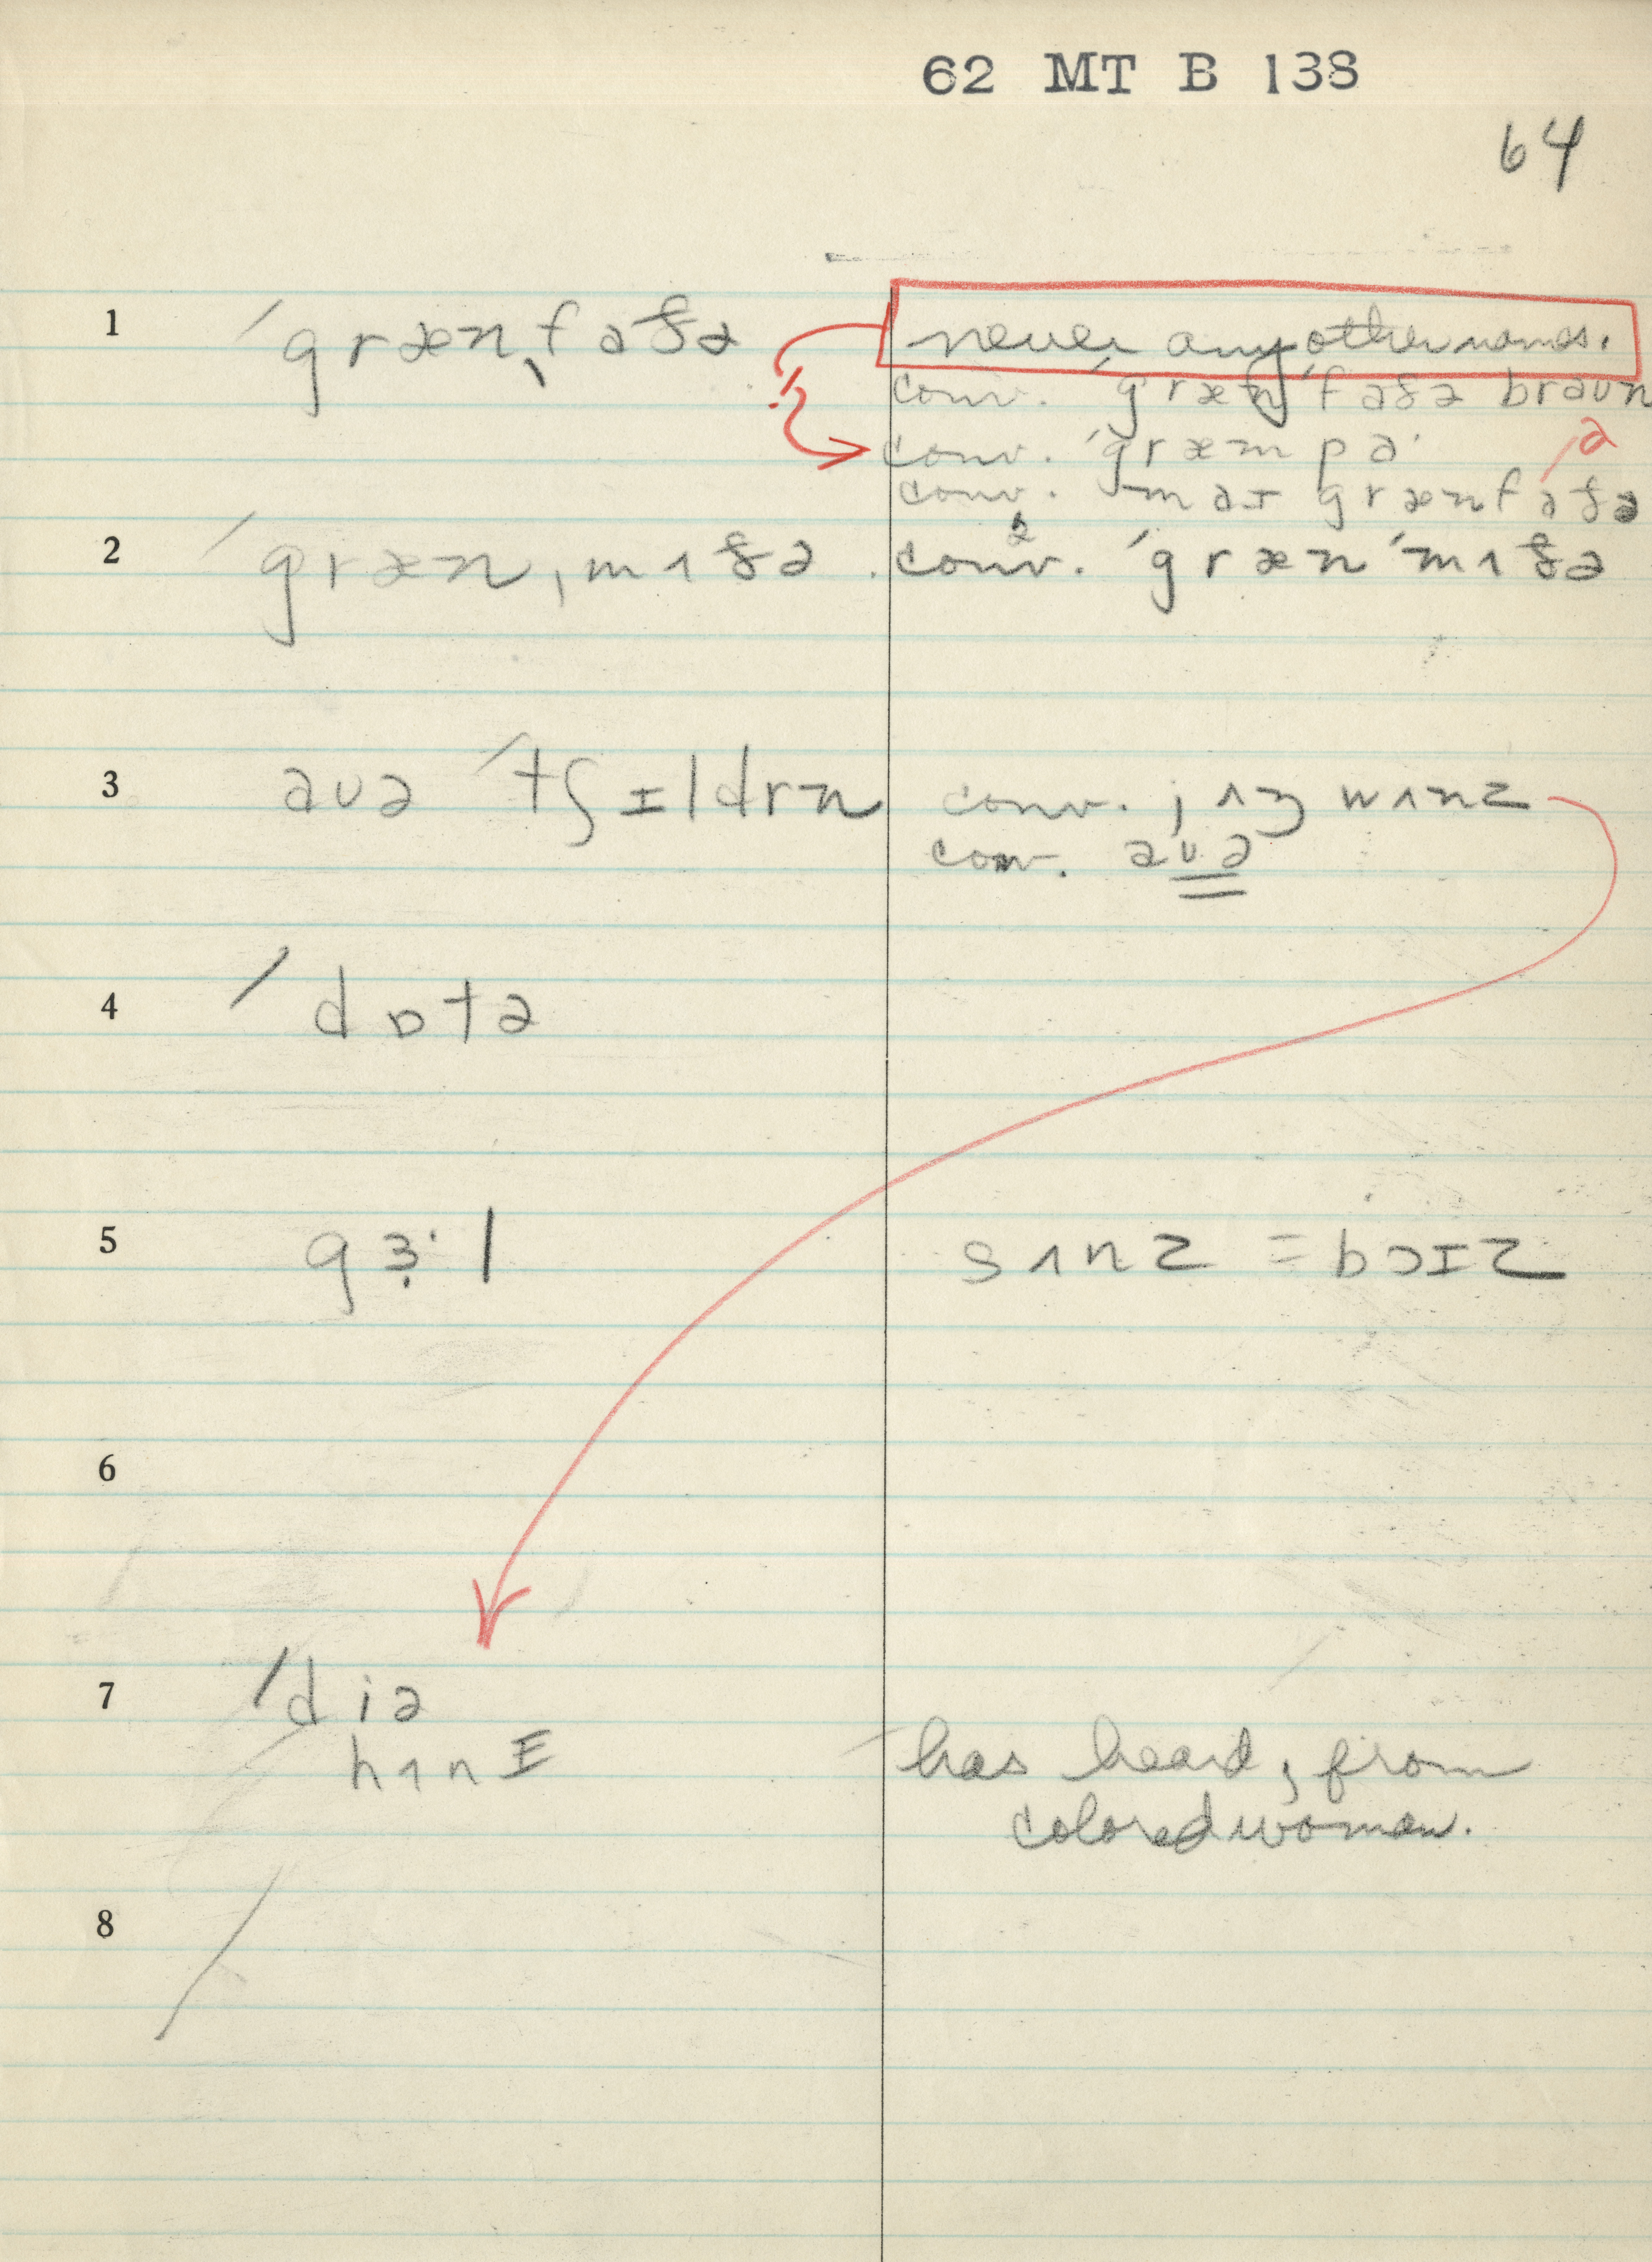 62 MT B 138
64
1 ˈgrænˌfaðə never any other names.
conv. ˈgrænˈfaðə braun
conv. ˈgræmpa·
a
conv. maɪ grænfaðə
2 ˈgrænˌmʌðə conv.² ˈgrænˈmʌðə
3 aʊə ˈtʃɪldrn conv. jʌŋ wʌnz
conv. aʊə
4 ˈdɒtə
5 gɜ·l sʌnz = bɔɪz
6
7 ˈdiə
hʌnɪ has heard, from
colored woman.
8